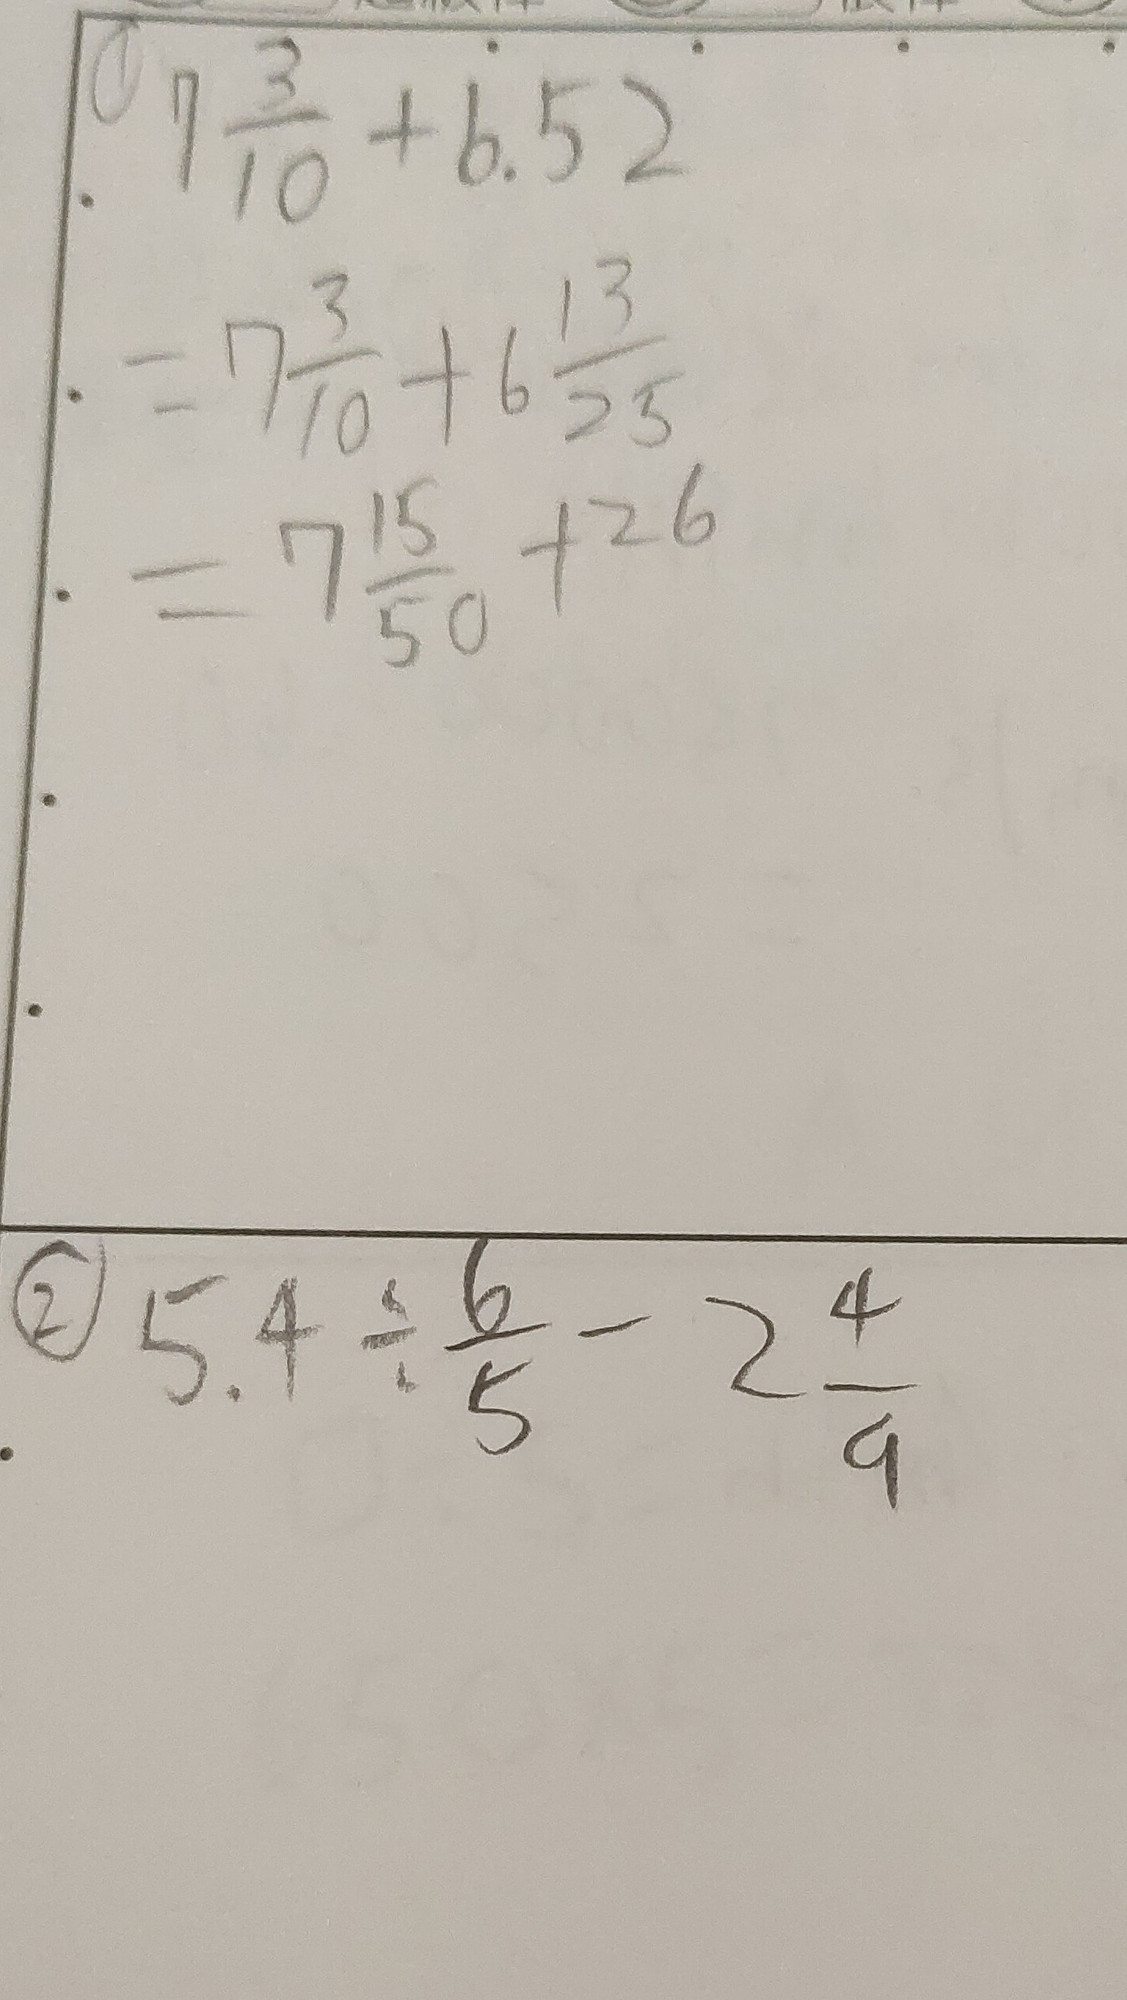 ① 7 3/10 + 6.52
= 7 3/10 + 6 13/25
= 7 15/50 + 26
② 5.4 ÷ 6/5 - 2 4/9